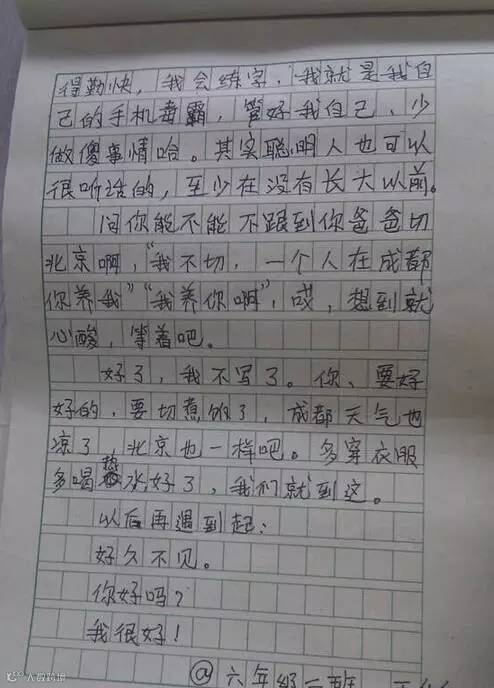 得勤快，我会练字，我就是我自
己的手机毒霸，管好我自己、少
做傻事情哈。其实聪明人也可以
很听话的，至少在没有长大以前。
问你能不能不跟到你爸爸切
北京啊，“我不切，一个人在成都
你养我”“我养你啊”，想到就
心酸，等着吧。
好了，我不写了。你、要好
好的，要切煮饭了，成都天气也
凉了，北京也一样吧。多穿衣服
多喝热水好了，我们就到这。
以后再遇到起：
好久不见。
你好吗？
我很好！
@六年级一班